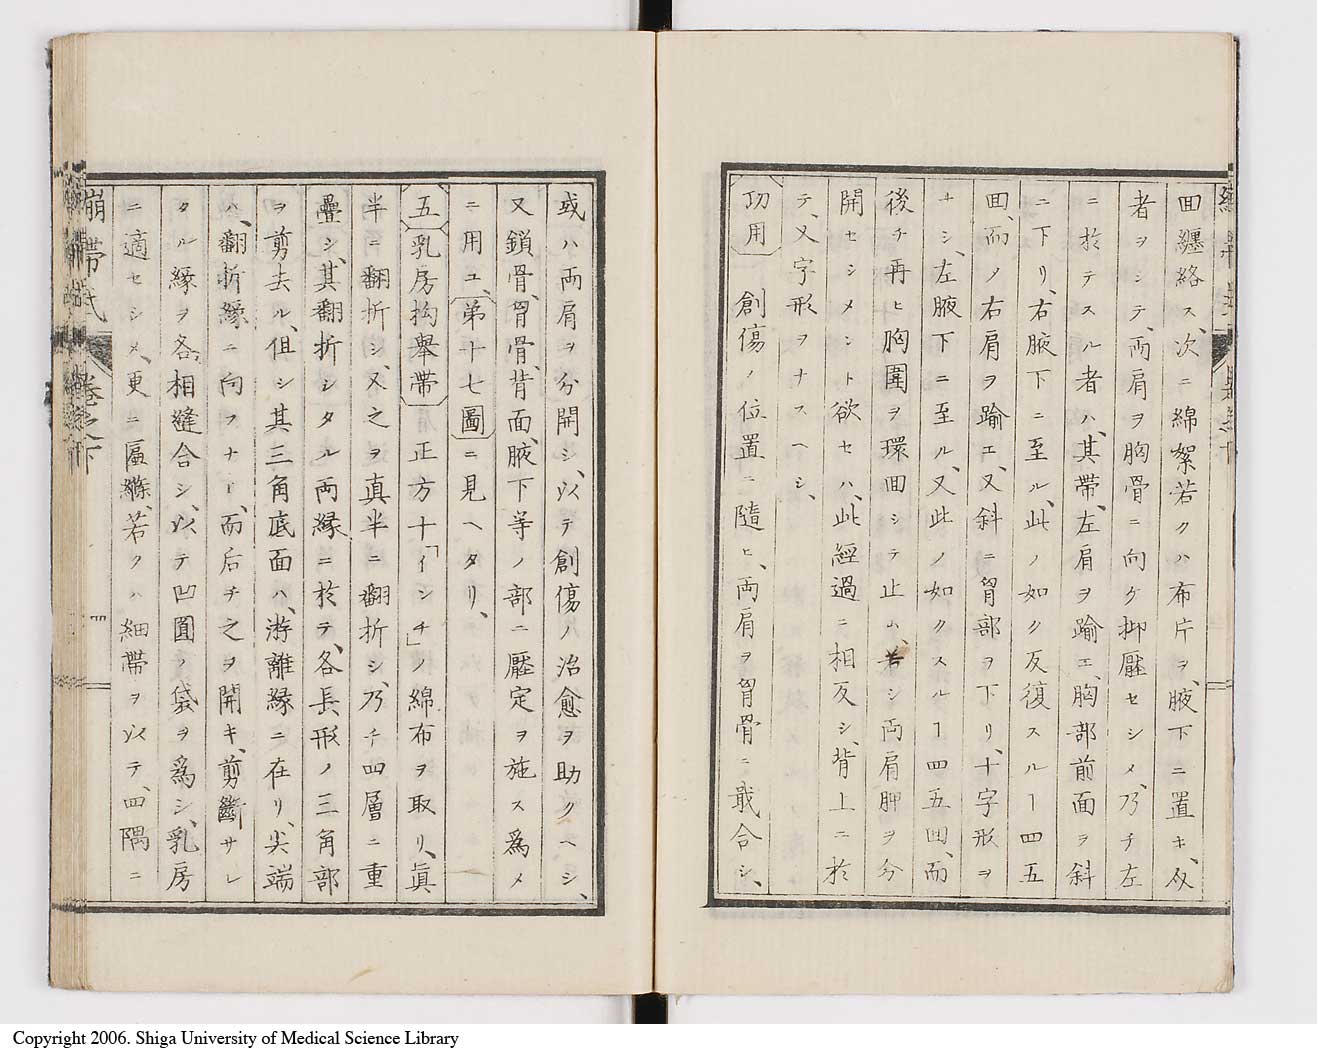 回纏絡ス、次ニ綿絮若クハ布片ヲ、腋下ニ置キ、
者ヲシテ、両肩ヲ胸骨ニ向ケ抑壓セシメ、乃チ左
ニ於テスル者ハ、其帯、左肩ヲ踰エ、胸部前面ヲ斜
ニ下リ、右腋下ニ至ル、此ノ如ク反復スルヿ四五
回、而ノ右肩ヲ踰エ、又斜ニ胷部ヲ下リ、十字形ヲ
ナシ、左腋下ニ至ル、又此ノ如クスルヿ四五回、而
後チ再ヒ胸圍ヲ環回シテ止ム、若シ両肩胛ヲ分
開セシメント欲セハ、此經過ニ相反シ、背上ニ於
テ、又字形ヲナスヘシ、
功用 創傷ノ位置ニ隨ヒ、両肩ヲ胷骨ニ戢合シ、
或ハ両肩ヲ分開シ、以テ創傷ノ治愈ヲ助クヘシ、
又鎖骨、胷骨、背面、腋下等ノ部ニ壓定ヲ施ス為メ
ニ用ユ、第十七圖ニ見ヘタリ、
五乳房抅舉帶 正方十「インチ」ノ綿布ヲ取リ、眞
半ニ翻折シ、又之ヲ真半ニ翻折シ、乃チ四層ニ重
疊シ、其翻折シタル両縁ニ於テ、各長形ノ三角部
ヲ剪去ル、但シ其三角底面ハ、游離縁ニ在リ、尖端
ハ、翻折縁ニ向フナリ、而后チ之ヲ開キ、剪斷サレ
タル縁ヲ各、相縫合シ、以テ凹圓ノ袋ヲ爲シ、乳房
ニ適セシメ、更ニ匾縧、若クハ細帶ヲ以テ、四隅ニ
繃帯式 巻之下 十
Copyright 2006. Shiga University of Medical Science Library